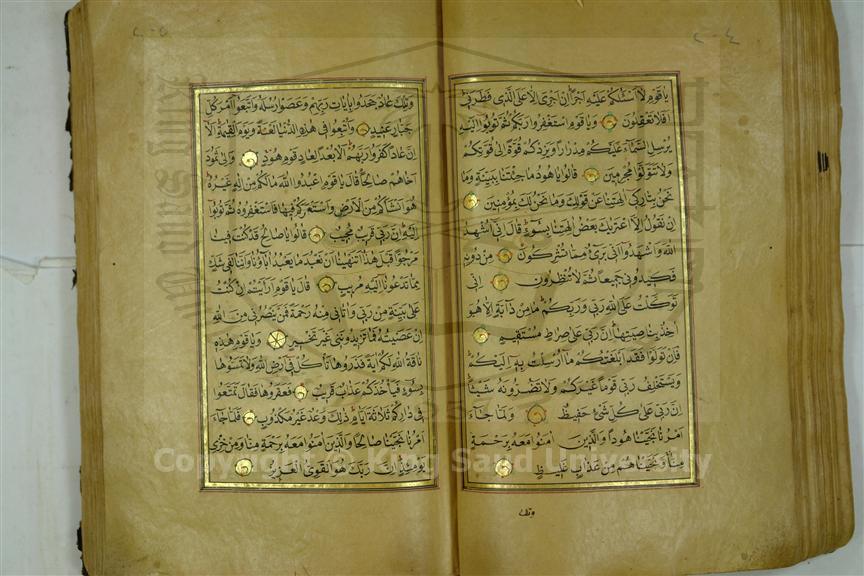 ٢٠٤
يا قوم لا اسئلكم عليه اجرا ان اجرى الا على الذى فطرنى
افلا تعقلون ويا قوم استغفروا ربكم ثم توبوا اليه
يرسل السماء عليكم مدرارا ويزدكم قوة الى قوتكم
ولا تتولوا مجرمين قالوا يا هود ما جئتنا ببينة وما
نحن بتاركى الهتنا عن قولك وما نحن لك بمؤمنين
ان نقول الا اعتريك بعض الهتنا بسوء قال انى اشهد
الله واشهدوا انى برئ مما تشركون من دونه
فكيدونى جميعا ثم لا تنظرون انى
توكلت على الله ربى وربكم ما من دابة الا هو
اخذ بناصيتها ان ربى على صراط مستقيم
فان تولوا فقد ابلغتكم ما ارسلت به اليكم
ويستخلف ربى قوما غيركم ولا تضرونه شيئا
ان ربى على كل شئ حفيظ ولما جاء
امرنا نجينا هودا والذين امنوا معه برحمة
منا ونجيناهم من عذاب غليظ
وتلك
٢٠٥
وتلك عاد جحدوا بايات ربهم وعصوا رسله واتبعوا امر كل
جبار عنيد واتبعوا فى هذه الدنيا لعنة ويوم القيمة الا
ان عادا كفروا ربهم الا بعدا لعاد قوم هود والى ثمود
اخاهم صالحا قال يا قوم اعبدوا الله ما لكم من اله غيره
هو انشاكم من الارض واستعمركم فيها فاستغفروه ثم توبوا
اليه ان ربى قريب مجيب قالوا يا صالح قد كنت فينا
مرجوا قبل هذا اتنهينا ان نعبد ما يعبد اباؤنا واننا لفى شك
مما تدعونا اليه مريب قال يا قوم ارايتم ان كنت
على بينة من ربى واتانى منه رحمة فمن ينصرنى من الله
ان عصيته فما تزيدوننى غير تخسير ويا قوم هذه
ناقة الله لكم اية فذروها تاكل فى ارض الله ولا تمسوها
بسوء فياخذكم عذاب قريب فعقروها فقال تمتعوا
فى داركم ثلاثة ايام ذلك وعد غير مكذوب فلما جاء
امرنا نجينا صالحا والذين امنوا معه برحمة منا ومن خزى
يومئذ ان ربك هو القوى العزيز
Copyright © King Saud University